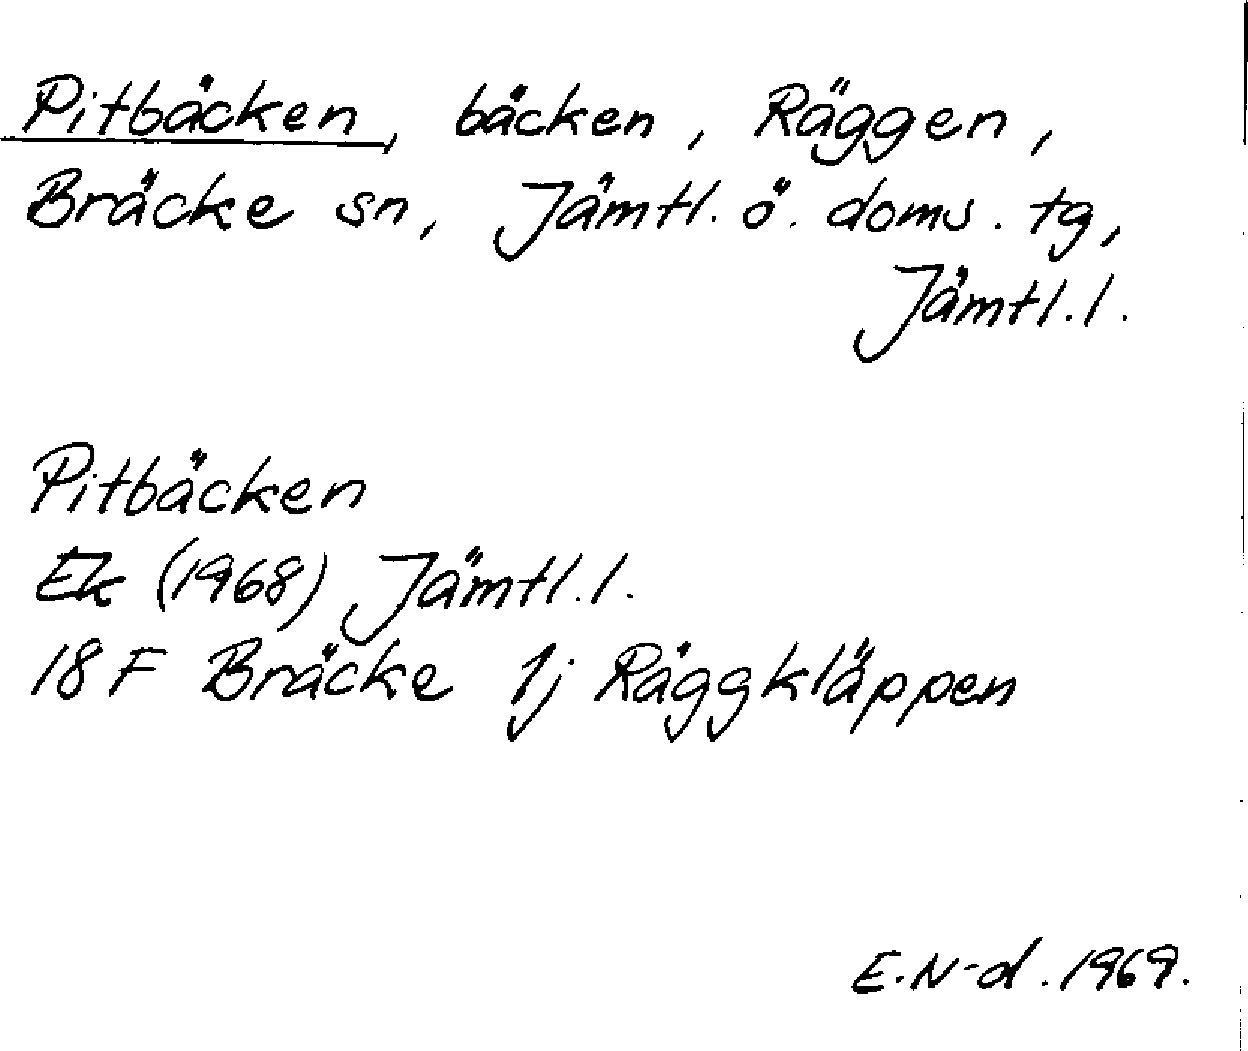 Pitbäcken, bäcken, Räggen,
Bräcke sn, Jämtl. ö. doms. tg,
Jämtl. l.
Pitbäcken
Ek (1968) Jämtl. l.
18 F Bräcke 1j Räggkläppen
E. N-d. 1969.